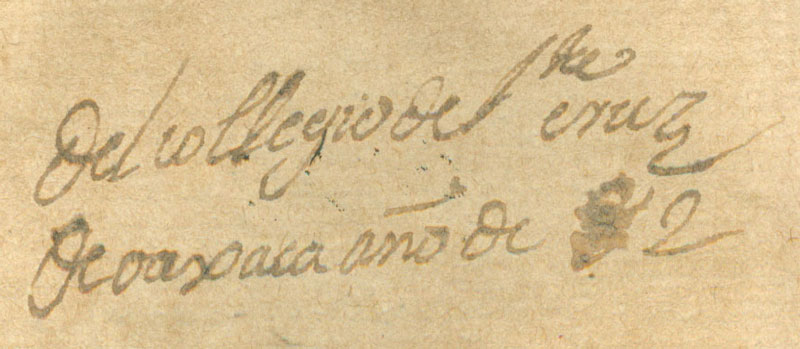 del collegio de S.ta cruz
de oaxaca año de